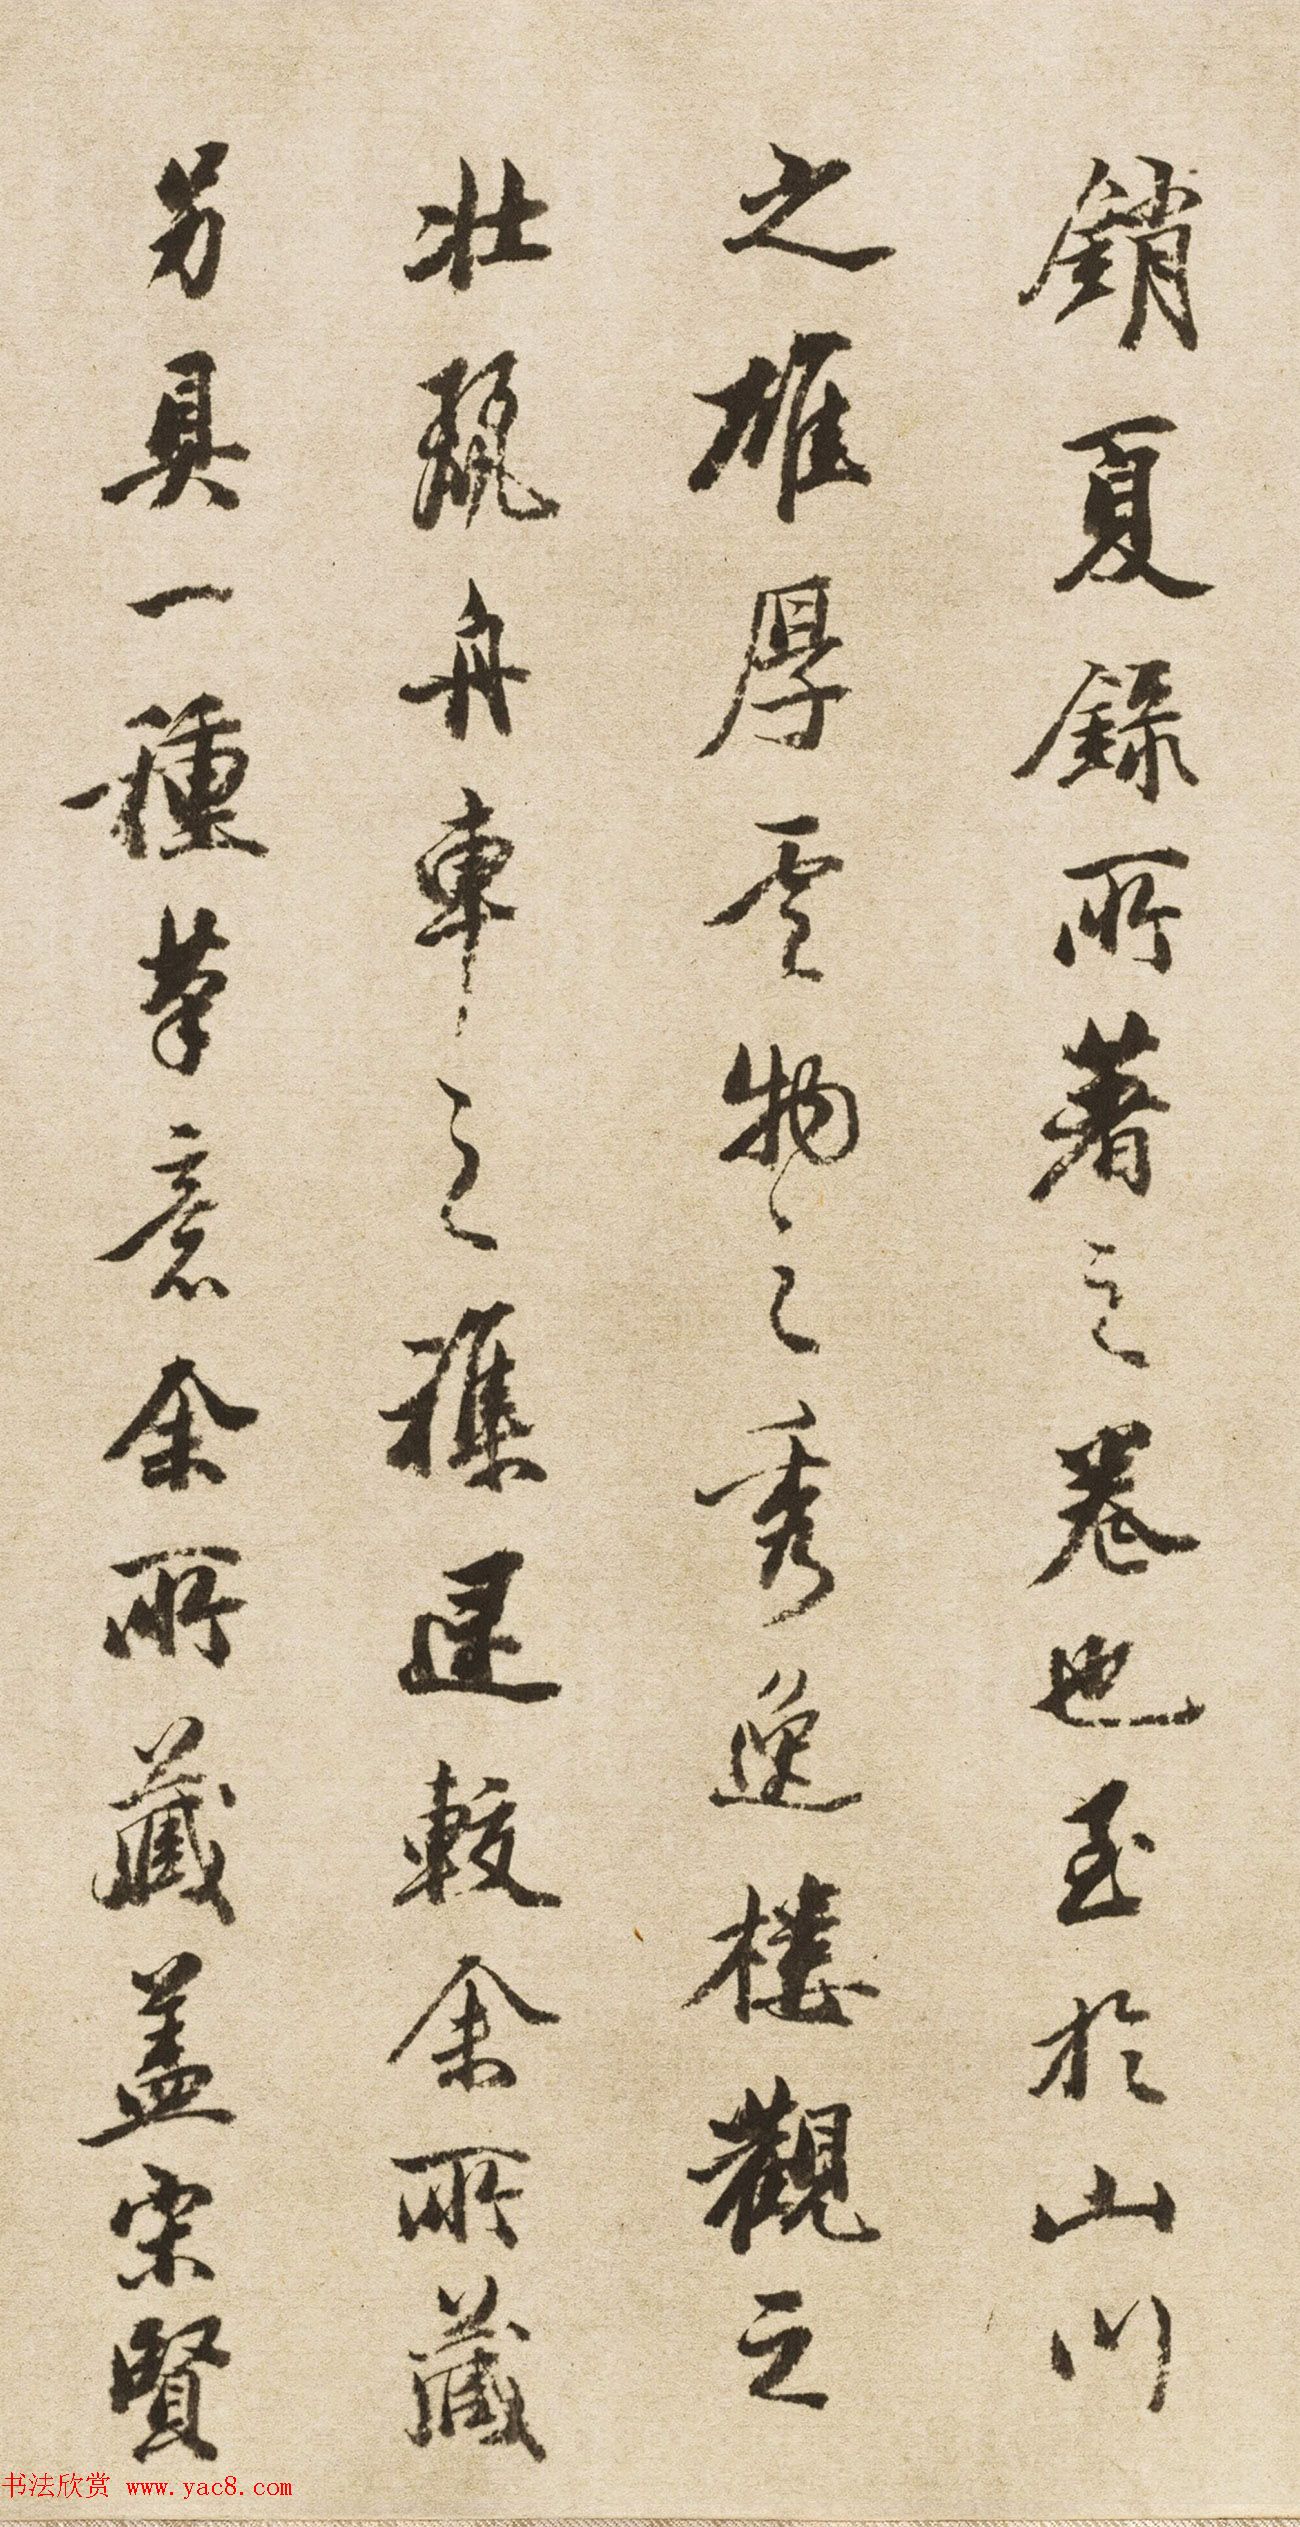 銷夏錄所著之卷也至於山川
之雄厚雲物之秀逸樓觀之
壯麗舟車之樸遲較余所藏
另具一種筆意余所藏蓋宋賢
书法欣赏 www.yac8.com